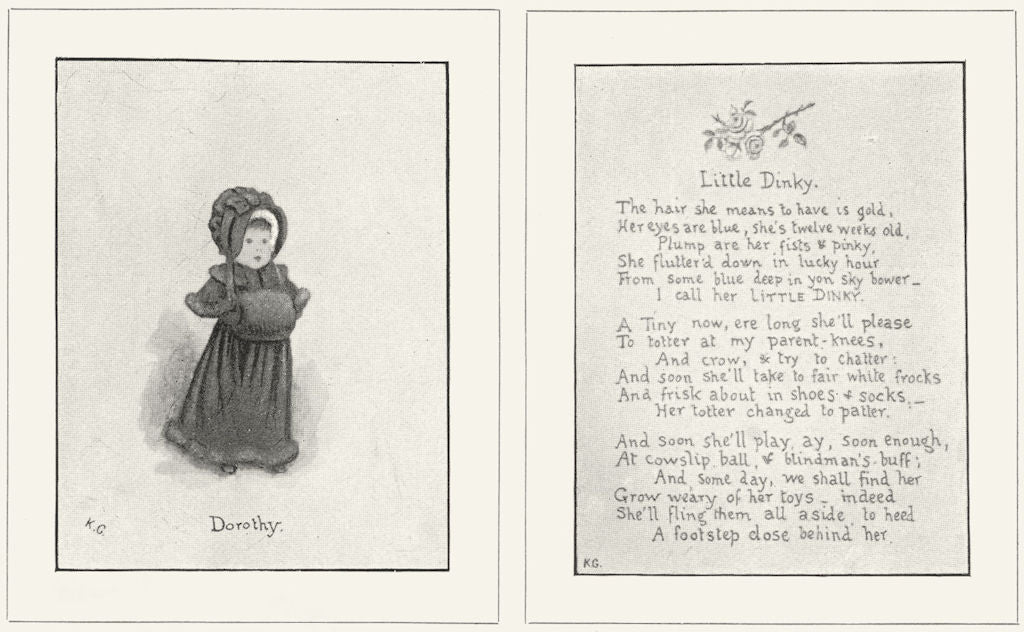 K.G.
Dorothy.
Little Dinky.
The hair she means to have is gold,
Her eyes are blue, she's twelve weeks old,
Plump are her fists & pinky,
She flutter'd down in lucky hour
From some blue deep in yon sky bower_
I call her LITTLE DINKY.
A Tiny now, ere long she'll please
To totter at my parent-knees,
And crow, & try to chatter:
And soon she'll take to fair white frocks
And frisk about in shoes & socks_
Her totter changed to patter.
And soon she'll play, ay, soon enough,
At cowslip ball, & blindman's-buff;
And, some day, we shall find her
Grow weary of her toys_ indeed
She'll fling them all aside to heed
A footstep close behind her
K.G.